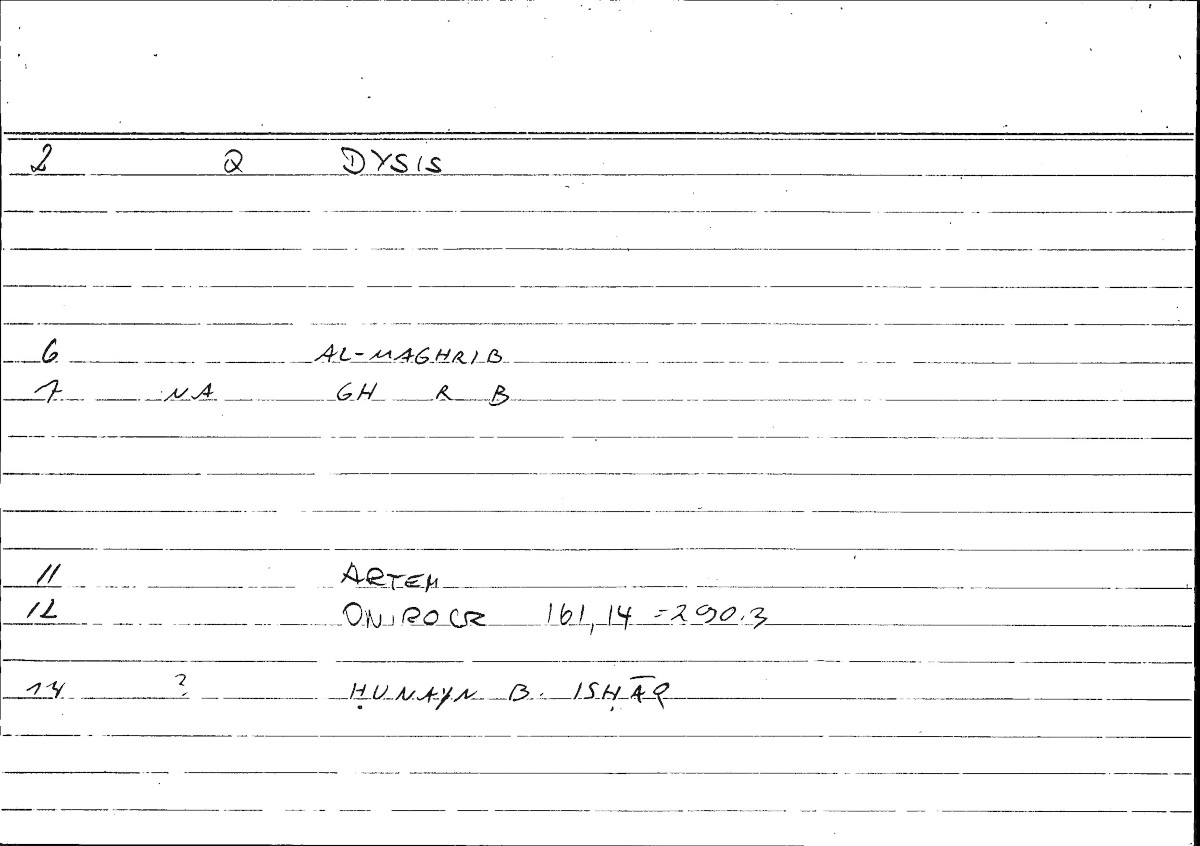 2 Q DYSIS
6 AL-MAGHRIB
7 NA GH R B
11 ARTEM
12 ONIROCR 161,14 =290.3
14 ? ḤUNAYN B. ISḤĀQ